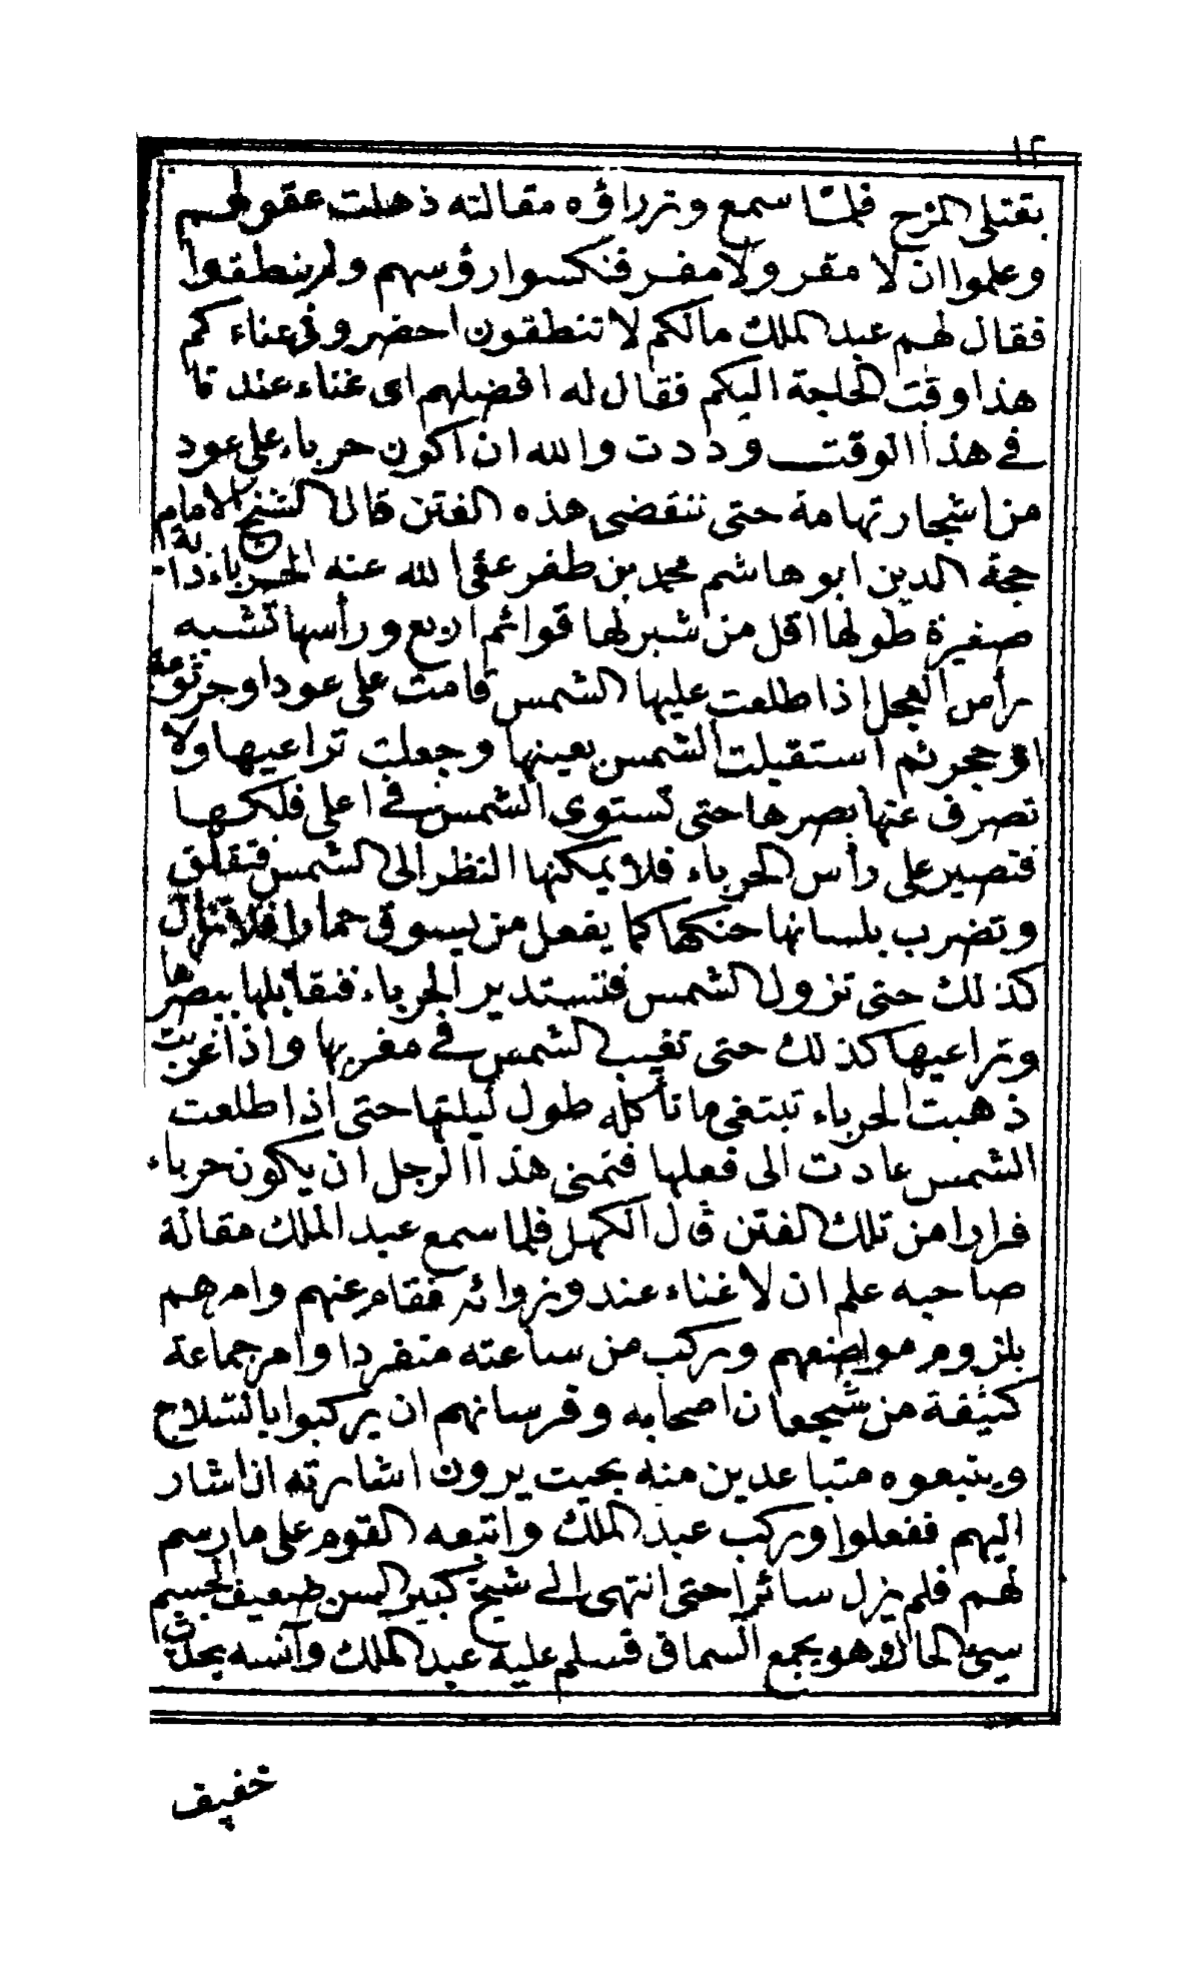 ١٢
بقتلى المرج فلما سمع وزراؤه مقالته ذهلت عقولهم
وعلموا ان لا مقر ولا مفر فنكسوا رؤسهم ولم ينطقوا
فقال لهم عبد الملك مالكم لا تنطقون احضروني غناءكم
هذا وقت الحاجة اليكم فقال له افضلهم اى غناء عندنا
في هذا الوقت وددت والله ان اكون حرباء على عود
من اشجار تهامة حتى تنقضى هذه الفتن قال الشيخ الامام
حجة الدين ابو هاشم محمد بن ظفر عفى الله عنه الحرباء دابة
صغيرة طولها اقل من شبر لها قوائم اربع ورأسها تشبه
رأس العجل اذا طلعت عليها الشمس قامت على عود او جرثومة
او حجر ثم استقبلت الشمس بعينها وجعلت تراعيها ولا
تصرف عنها بصرها حتى تستوى الشمس في اعلى فلكها
فتصير على رأس الحرباء فلا يمكنها النظر الى الشمس فتقلق
وتضرب بلسانها حنكها كما يفعل من يسوق حمارا فلا تزال
كذلك حتى تزول الشمس فتستدير الحرباء فتقابلها ببصرها
وتراعيها كذلك حتى تغيب الشمس في مغربها واذا غربت
ذهبت الحرباء تبتغى ما تأكله طول ليلتها حتى اذا طلعت
الشمس عادت الى فعلها فتمنى هذا الرجل ان يكون حرباء
فرارا من تلك الفتن قال الكهل فلما سمع عبد الملك مقالة
صاحبه علم ان لا غناء عند وزرائه فقام عنهم وامرهم
بلزوم مواضعهم وركب من ساعته منفردا وامر جماعة
كثيفة من شجعان اصحابه وفرسانهم ان يركبوا بالسلاح
ويتبعوه متباعدين منه بحيث يرون اشارته ان اشار
اليهم ففعلوا وركب عبد الملك واتبعه القوم على ما رسم
لهم فلم يزل سائرا حتى انتهى الى شيخ كبير السن ضعيف الجسم
سيئ الحال وهو يجمع السماق فسلم عليه عبد الملك وآنسه بحديث
خفيف